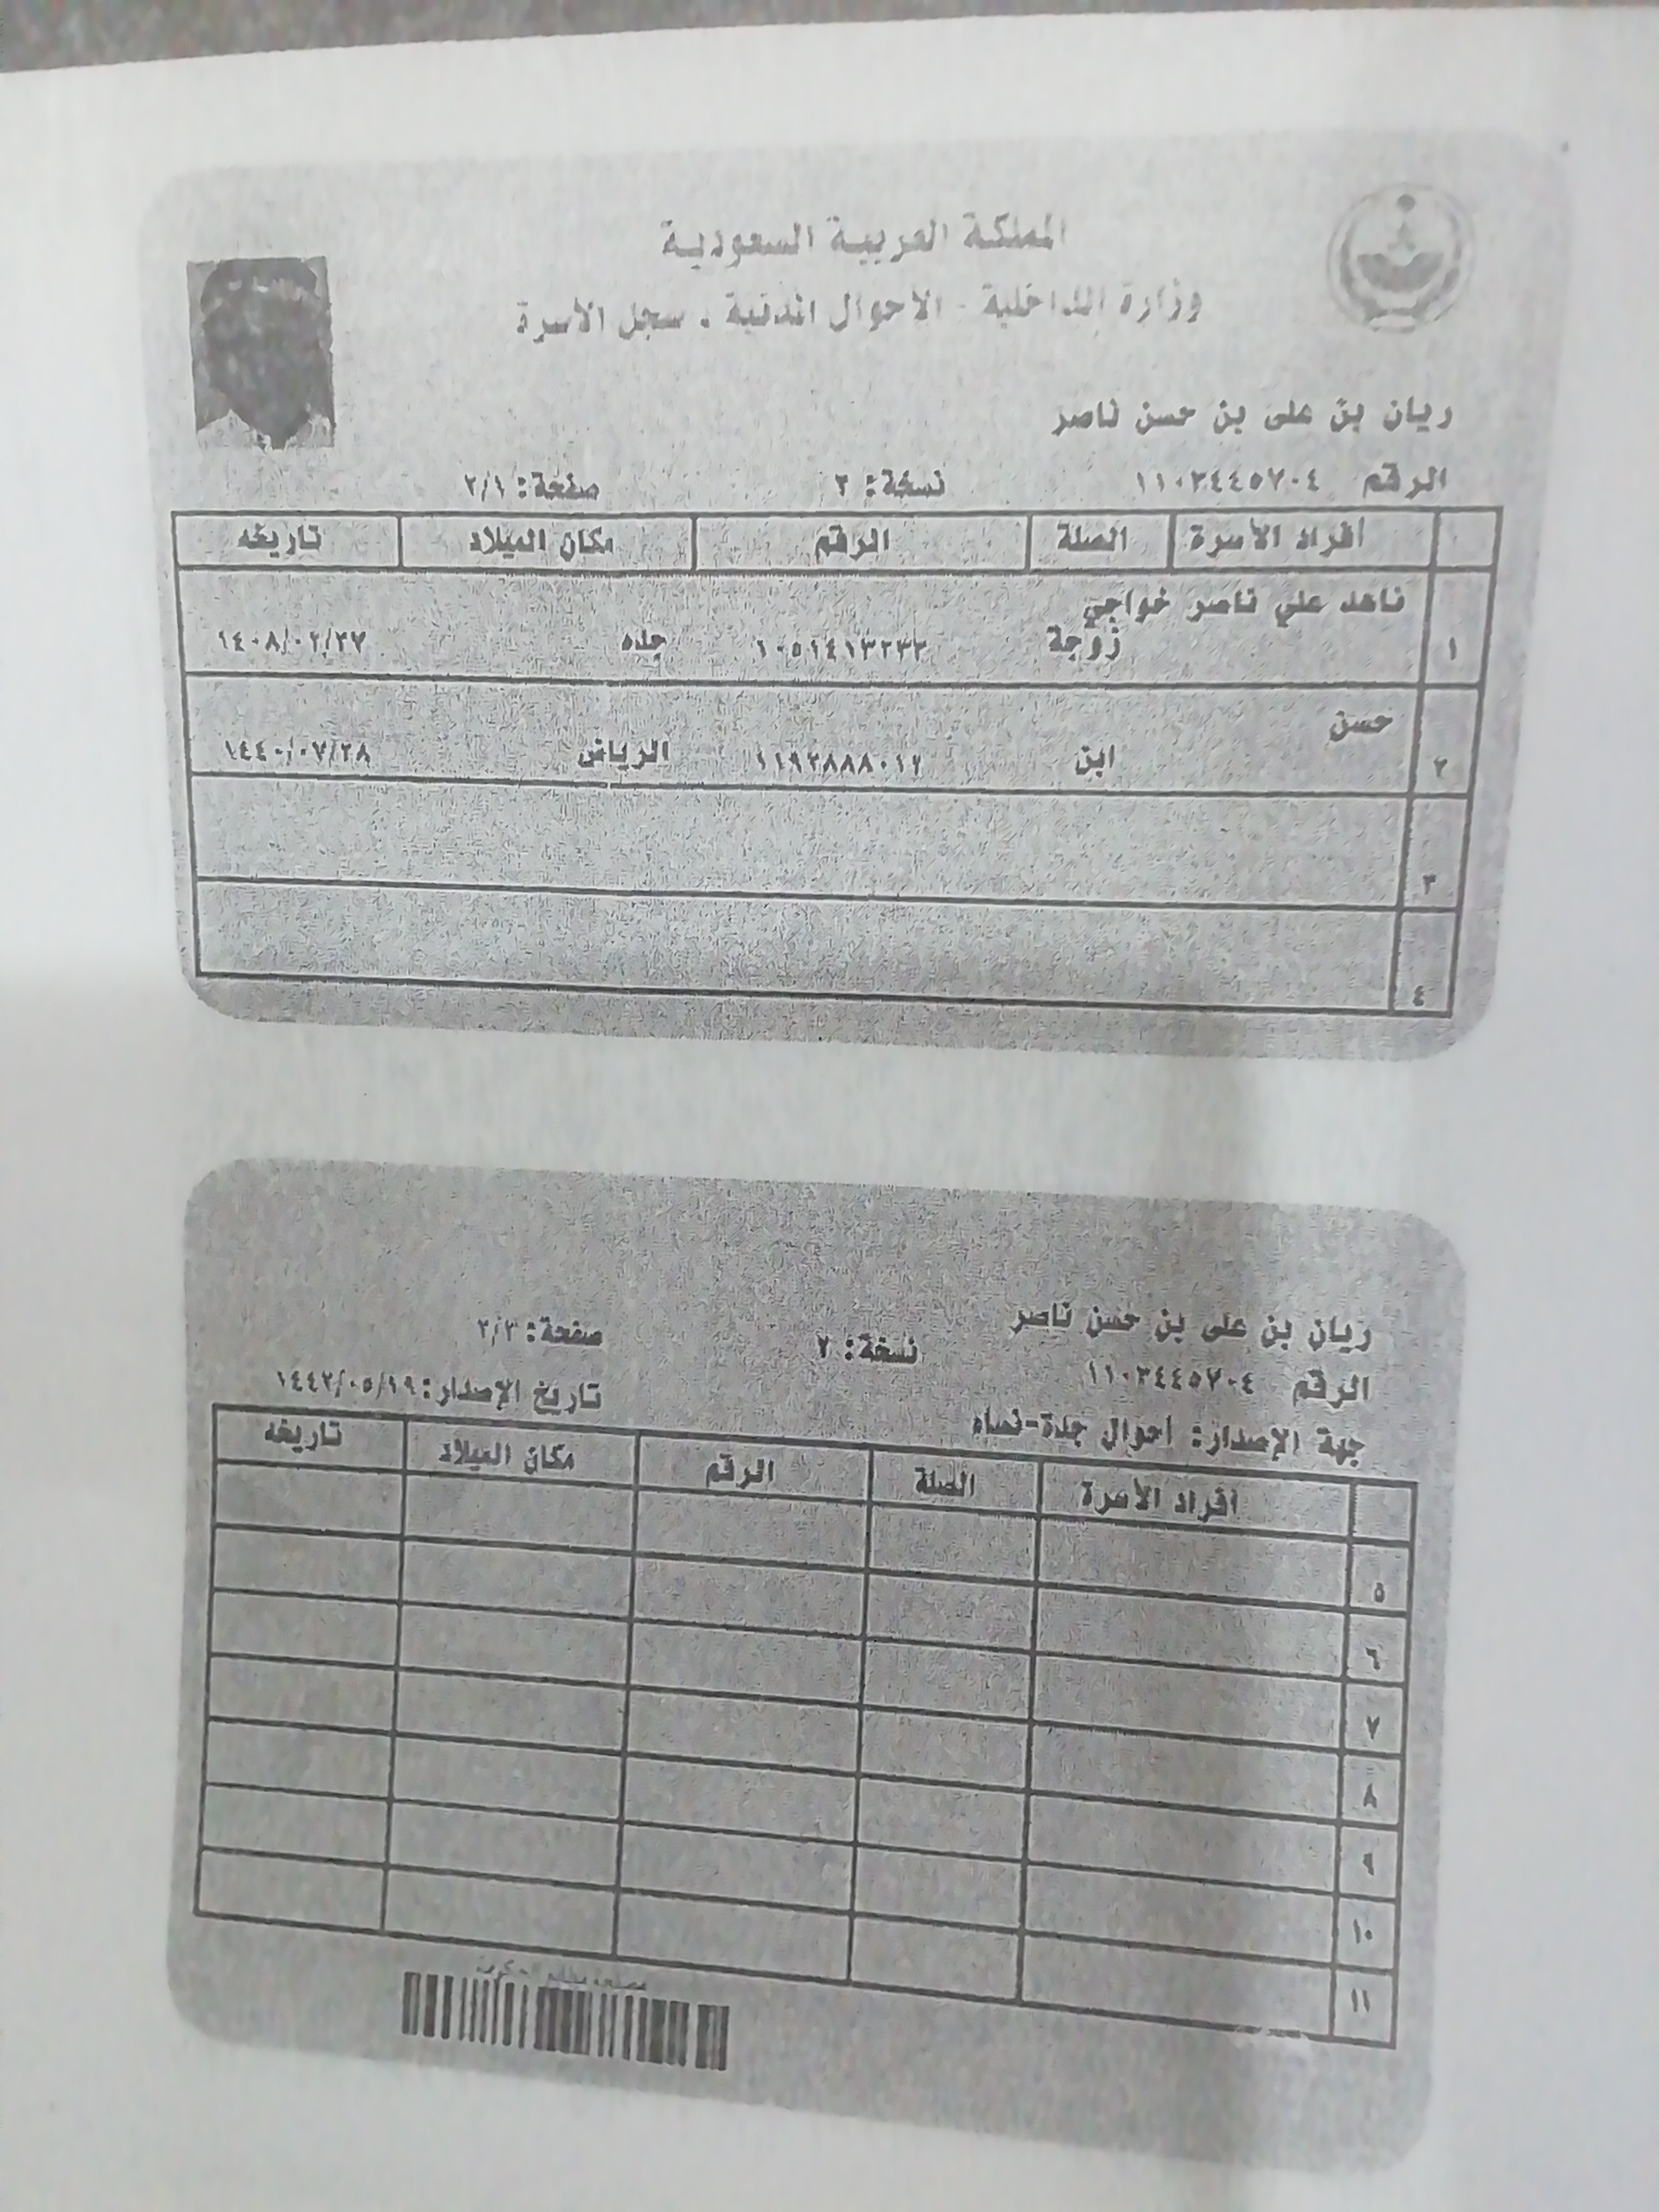 المملكة العربية السعودية
وزارة الداخلية - الأحوال المدنية - سجل الأسرة
ريان بن على بن حسن ناصر
الرقم ١١٠٣٤٤٥٧٠٤ نسخة: ٢ صفحة: ٢/١
أفراد الأسرة الصلة الرقم مكان الميلاد تاريخه
ناهد علي ناصر خواجي
١ زوجة جده
حسن
٢ ابن الرياض ١٤٤٠/٠٧/٢٨
٣
٤
ريان بن على بن حسن ناصر
الرقم ١١٠٣٤٤٥٧٠٤ نسخة: ٢ صفحة: ٢/٢
جهة الإصدار: احوال جدة-نساء تاريخ الإصدار: ١٤٤٢/٠٥/١٩
أفراد الأسرة الصلة الرقم مكان الميلاد تاريخه
٥
٦
٧
٨
٩
١٠
١١